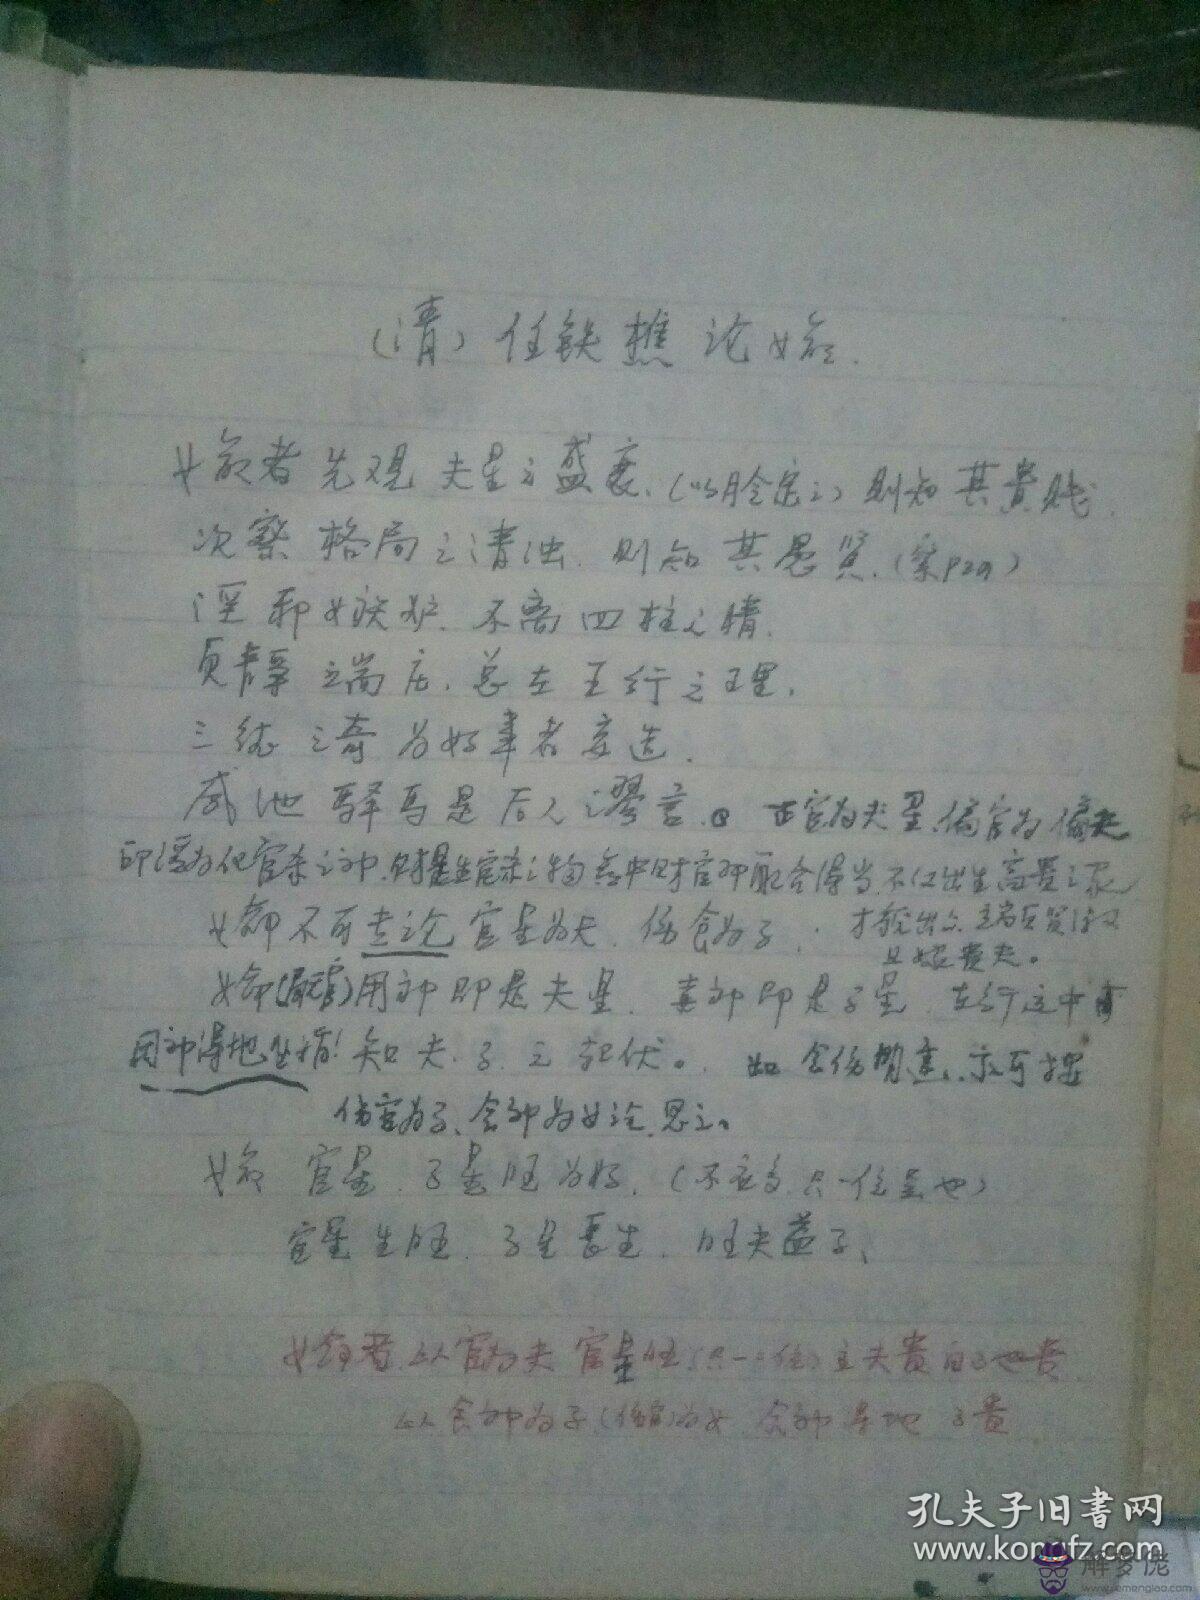 (清) 任铁樵论女命.
女命者先观夫星之盛衰、(以月令定之) 则知其贵贱.
次察格局之清浊. 则知其愚贤、(察P29)
淫邪嫉妒. 不离四柱之情.
贞静端庄、总在五行之理.
三 之奇为好事者妄造.
咸池驿马是后人谬言. 正官为夫星、偏官为偏夫
印 为化官杀之神. 财是生官杀之物 命中财官印配合得当. 不仅出生高贵之家
女命不可专论官星为夫. 伤食为子. 才 端
且嫁贵夫。
女命 用神即是夫星. 喜神即是子星. 在行运中看
用神得地 知夫. 子之起伏。 如食伤 亦可按
伤官为子、食神为女论. 思之。
女命 官星. 子星旺为好. (不宜多. 只一位是也)
官星生旺. 子星长生. 旺夫益子、
女命者以官为夫 官星旺(只一 位)主夫贵 也贵
以食神为子(伤官)为女. 食神得地 子贵
孔夫子旧书网
www.kongfz.com
解梦佬
www.jiemenglao.com